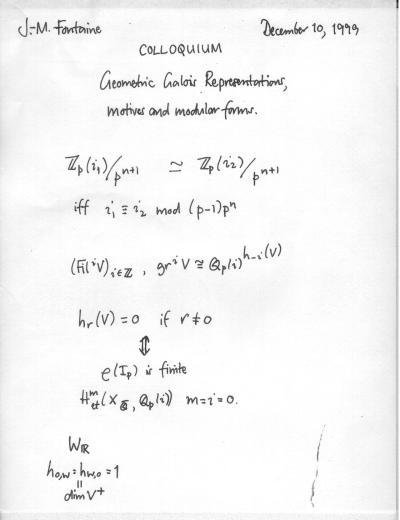 J.-M. Fontaine December 10, 1999
COLLOQUIUM
Geometric Galois Representations,
motives and modular forms.
ℤ_p(i_1)/p^{n+1} ≃ ℤ_p(i_2)/p^{n+1}
iff i_1 ≡ i_2 mod (p-1)p^n
(Fil^i V)_{i∈ℤ} , gr^i V ≅ ℚ_p(i)^{h_{-i}(V)}
h_r(V) = 0 if r ≠ 0
⇕
ρ(I_p) is finite
H^m_{et}(X_{ℚ̄}, ℚ_p(i)) m=i=0.
W_ℝ
h_{0,w} = h_{w,0} = 1
=
dim V^+